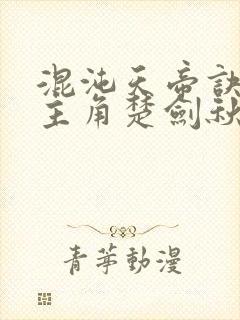 混沌天帝訣
主角楚劍秋
青葶動漫